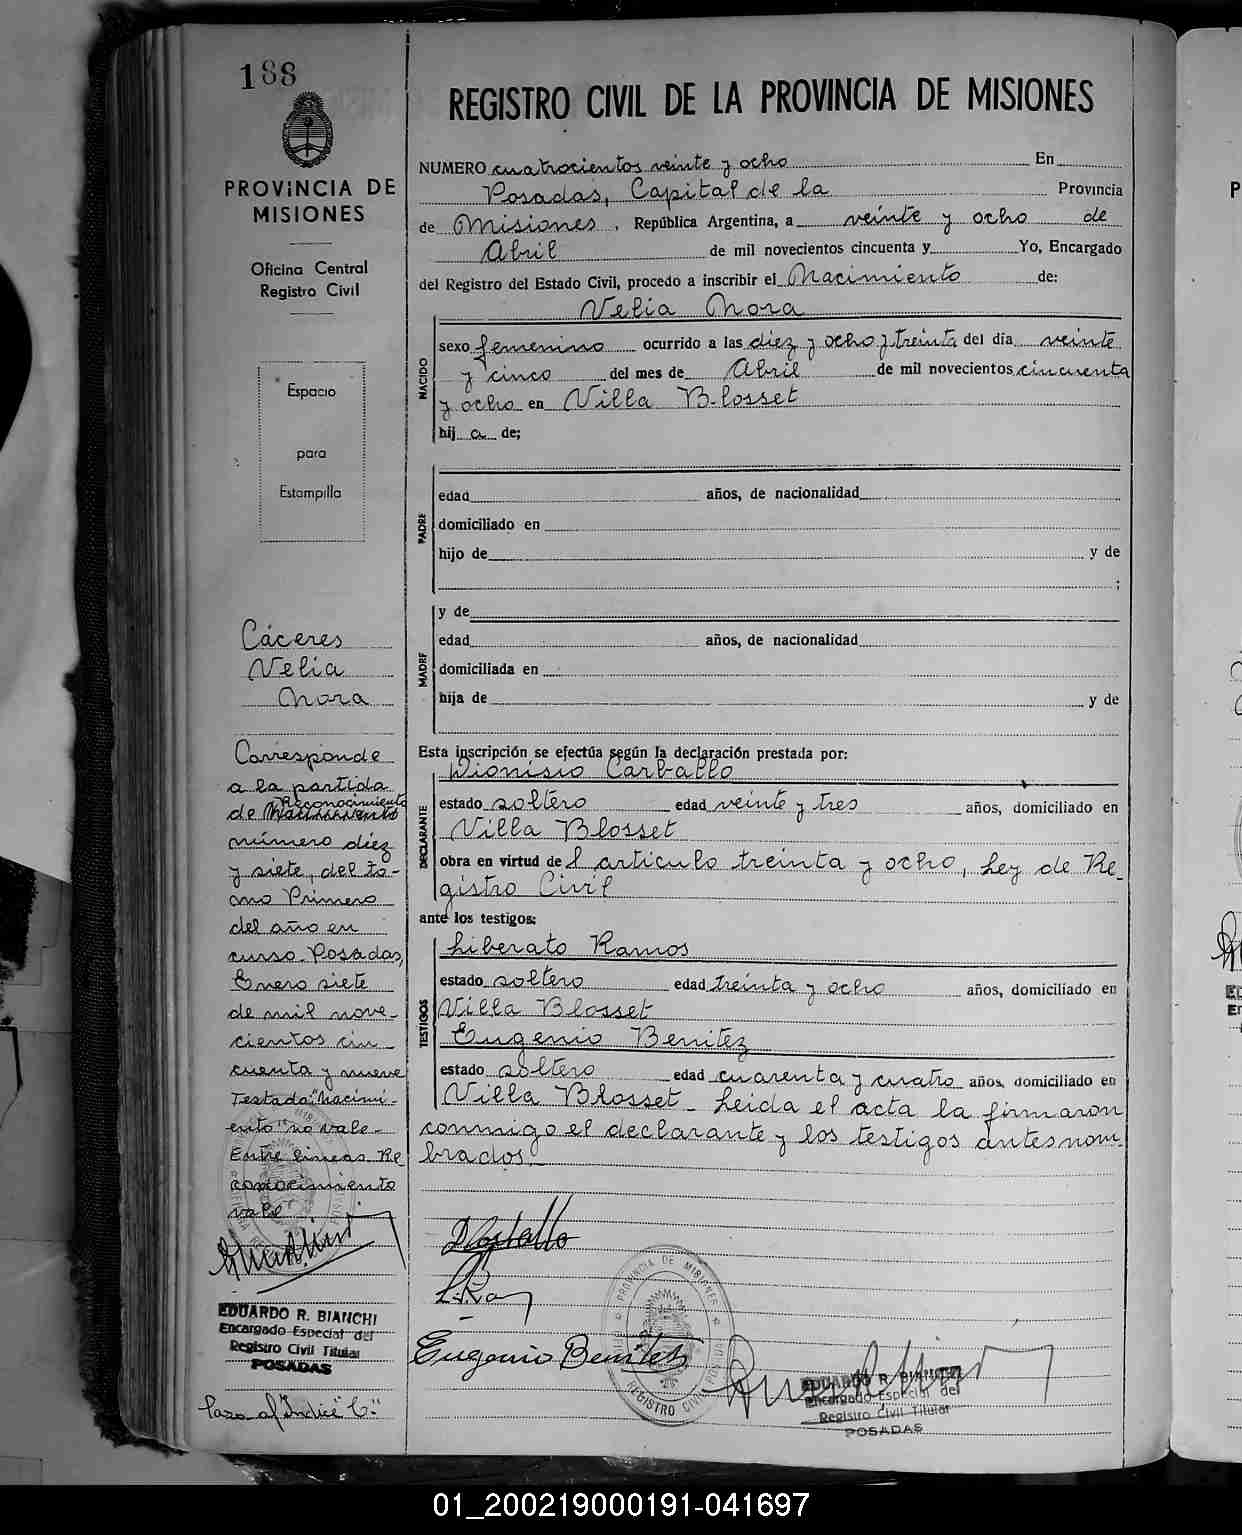 188
PROVINCIA DE
MISIONES
Oficina Central
Registro Civil
Espacio
para
Estampilla
Cáceres
Velia
Nora
Corresponde
a la partida
Reconocimiento
de Nacimiento
número diez
y siete, del to-
mo Primero
del año en
curso. Posadas,
Enero siete
de mil nove-
cientos cin
cuenta y nueve
Testada "Nacimi-
ento" no vale-
Entre lineas. Re
conocimiento
vale
EDUARDO R. BIANCHI
Encargado Especial del
Registro Civil Titular
POSADAS
Pasa al Indice "C."
REGISTRO CIVIL DE LA PROVINCIA DE MISIONES
NUMERO cuatrocientos veinte y ocho En
Posadas, Capital de la Provincia
de Misiones, República Argentina, a veinte y ocho de
Abril de mil novecientos cincuenta y Yo, Encargado
del Registro del Estado Civil, procedo a inscribir el Nacimiento de:
Velia Nora
NACIDO
sexo femenino ocurrido a las diez y ocho y treinta del día veinte
y cinco del mes de Abril de mil novecientos cincuenta
y ocho en Villa Blosset
hij a de;
PADRE
edad años, de nacionalidad
domiciliado en
hijo de y de
;
MADRE
y de
edad años, de nacionalidad
domiciliada en
hija de y de
Esta inscripción se efectúa según la declaración prestada por:
DECLARANTE
Dionisio Carballo
estado soltero edad veinte y tres años, domiciliado en
Villa Blosset
obra en virtud de l articulo treinta y ocho, Ley de Re-
gistro Civil
ante los testigos:
TESTIGOS
Liberato Ramos
estado soltero edad treinta y ocho años, domiciliado en
Villa Blosset
Eugenio Benitez
estado soltero edad cuarenta y cuatro años, domiciliado en
Villa Blosset - Leida el acta la firmaron
conmigo el declarante y los testigos antes nom-
brados.-
Eugenio Benitez
PROVINCIA DE MISIONES
REGISTRO CIVIL POSADAS
EDUARDO R. BIANCHI
Encargado Especial del
Registro Civil Titular
POSADAS
01_200219000191-041697